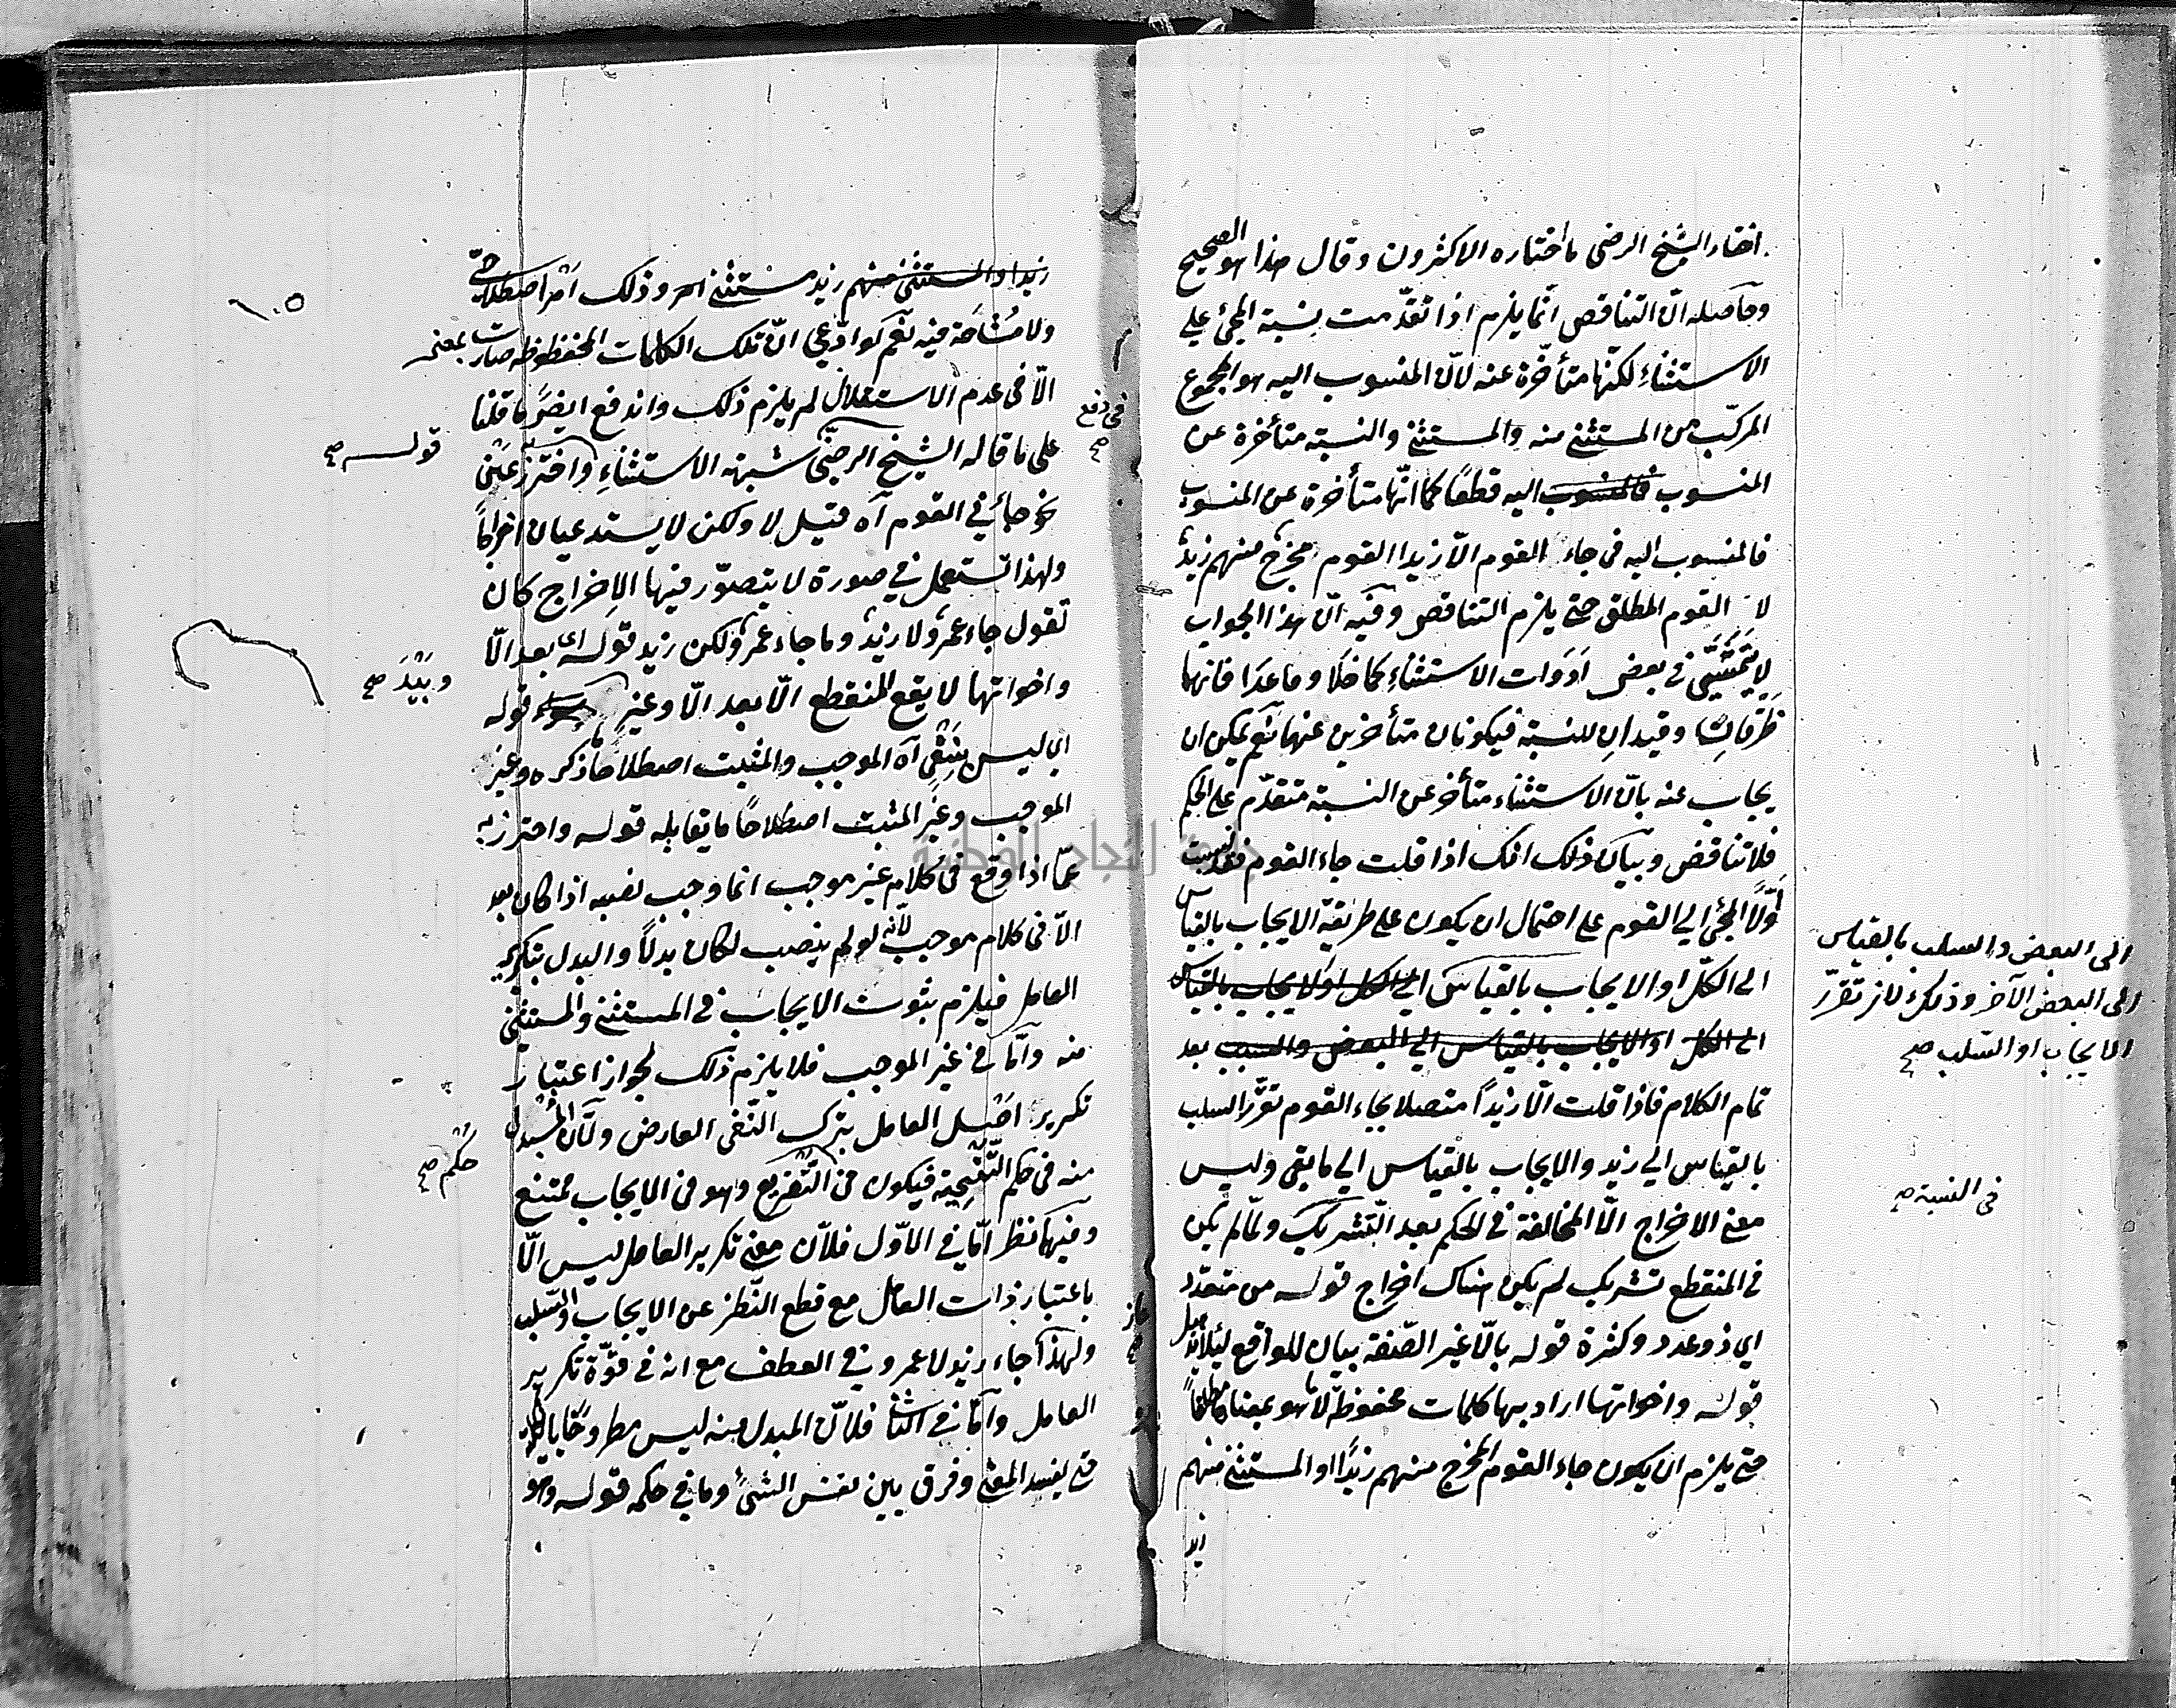 اختار الشيخ الرضى ما اختاره الاكثرون وقال هذا هو الصحيح
وحاصله انّ التناقض انّما يلزم اذا تقدّمت نسبة المجئ على
الاستثناءِ لكنّها متأخّرة عنه لانّ المنسوب اليه هو المجموع
المركّب من المستثنى منه والمستثنى والنسبة متأخرة عن
المنسوب فالمنسوب اليه قطعًا كما انّها متأخرة عن المنسوب
فالمنسوب اليه فى جاء القوم الّا زيدا القوم مخرج منهم زيدٌ
لا القوم المطلق حتى يلزم التناقض وفيه انّ هذا الجواب
لا يتمشّى فى بعض ادَوَات الاستثناءِ كما خلَا وما عدَا فانهما
ظرفانِ وقيدانِ للنسبة فيكونان متأخرين عنها نعم يمكن ان
يجاب عنه بانّ الاستثناء متأخر عن النسبة متقدّم على الحكم
فلا تناقض وبيان ذلك انك اذا قلت جاء القوم فقد نسبت
أوّلًا المجئ الى القوم على احتمال ان يكون على طريقة الايجاب بالقياس
الى الكلّ او الايجاب بالقياس الى الكل او الايجاب بالقياس
الى الكل او الايجاب بالقياس الى البعض والسلب بعد
تمام الكلام فاذا قلت الّا زيداً متصلا بجاء القوم تقرّر السلب
بالقياس الى زيد والايجاب بالقياس الى ما بقى وليس
معنى الاخراج الّا المخالفة فى الحكم بعد التّشريك ولمّا لم يكن
فى المنقطع تشريك لم يكن هناك اخراج قوله من متعدّد
اي ذو عدد وكثرة قوله بالّا غير الصّفة بيان للواقع
قوله واخواتها اراد بها كلمات محفوظة لا ما هو بمعناها مطلقاً
حتى يلزم ان يكون جاء القوم المخرج منهم زيدًا او المستثنى منهم
زيدا
الى البعض والسلب بالقياس
الى البعض الآخر وذلك لان تقرّر
الايجاب او السّلب صح
فى النسبة صح
زيدا والمستثنى منهم زيد مستثنى وذلك امر اصطلاحيّ
ولا مُشاحّة فيه نعم لو ادّعي انّ تلك الكلمات المحفوظة صارت بمعنى
الّا فى عدم الاستقلال لم يلزم ذلك واندفع ايضًا ما قلنا
على ما قاله الشيخ الرضىّ شبهة الاستثناءِ واحترز عن
نحو جاءنى القوم آه قيل لا ولكن لا يستدعيان اخراجاً
ولهذا تستعمل فى صورة لا يتصوّر فيها الاِخراج كان
تقول جاء عمرٌو لا زيدٌ وما جاء عمرٌو لكن زيد قوله اى بعد الّا
واخواتها لا يقع المنقطع الّا بعد الّا وغير سواء قوله
اى ليس بِنَفْيٍ آه الموجب والمثبت اصطلاحًا ما ذكره وغير
الموجب وغير المثبت اصطلاحًا ما يقابله قوله واحترز به
عمّا اذا وقع فى كلام غير موجب انما وجب نصبه اذا كان بعد
الّا فى كلام موجب لأنّه لو لم ينصب لكان بدلًا والبدل بتكرير
العامل فيلزم ثبوت الايجاب فى المستثنى والمستثنى
منه وامّا فى غير الموجب فلا يلزم ذلك لجواز اعتبار
تكرير اصل العامل بترك النّفى العارض ولأنّ المبدل
منه فى حكم التّنحية فيكون فى التّفريع وهو فى الايجاب ممتنع
وفيهما نظر امّا فى الاوّل فلأنّ معنى تكرير العامل ليس الّا
باعتبار ذات العامل مع قطع النّظر عن الايجاب والسّلب
ولهذا جاء زيد لا عمرو فى العطف مع انه فى قوّة تكرير
العامل وامّا فى الثانى فلانّ المبدل منه ليس مطروحًا بالكلية
حتى يفسد المعنى وفرق بين نفس الشئ وما فى حكمه قوله وهو
فى دفع صح
قوله صح
وبَيْدَ صح
حُكْم صح